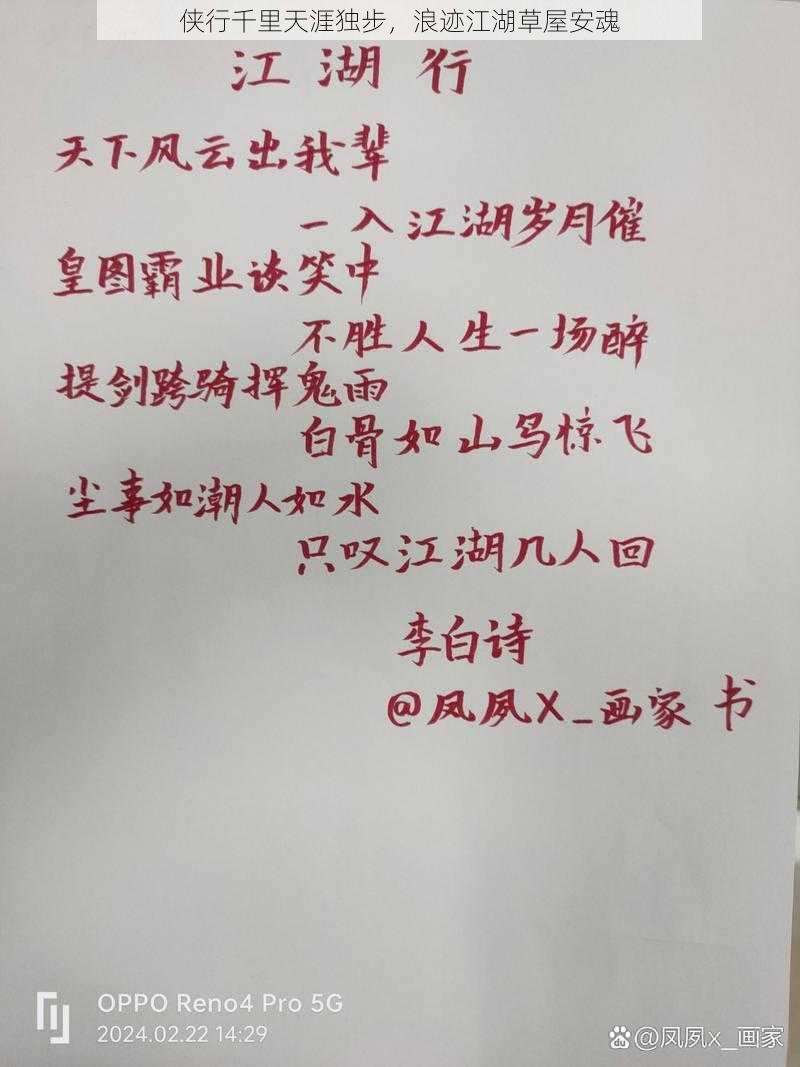 侠行千里天涯独步，浪迹江湖草屋安魂
江湖行
天下风云出我辈
一入江湖岁月催
皇图霸业谈笑中
不胜人生一场醉
提剑跨骑挥鬼雨
白骨如山鸟惊飞
尘事如潮人如水
只叹江湖几人回
李白诗
@凤夙X_画家 书
OPPO Reno4 Pro 5G
2024.02.22 14:29
@凤夙x_画家